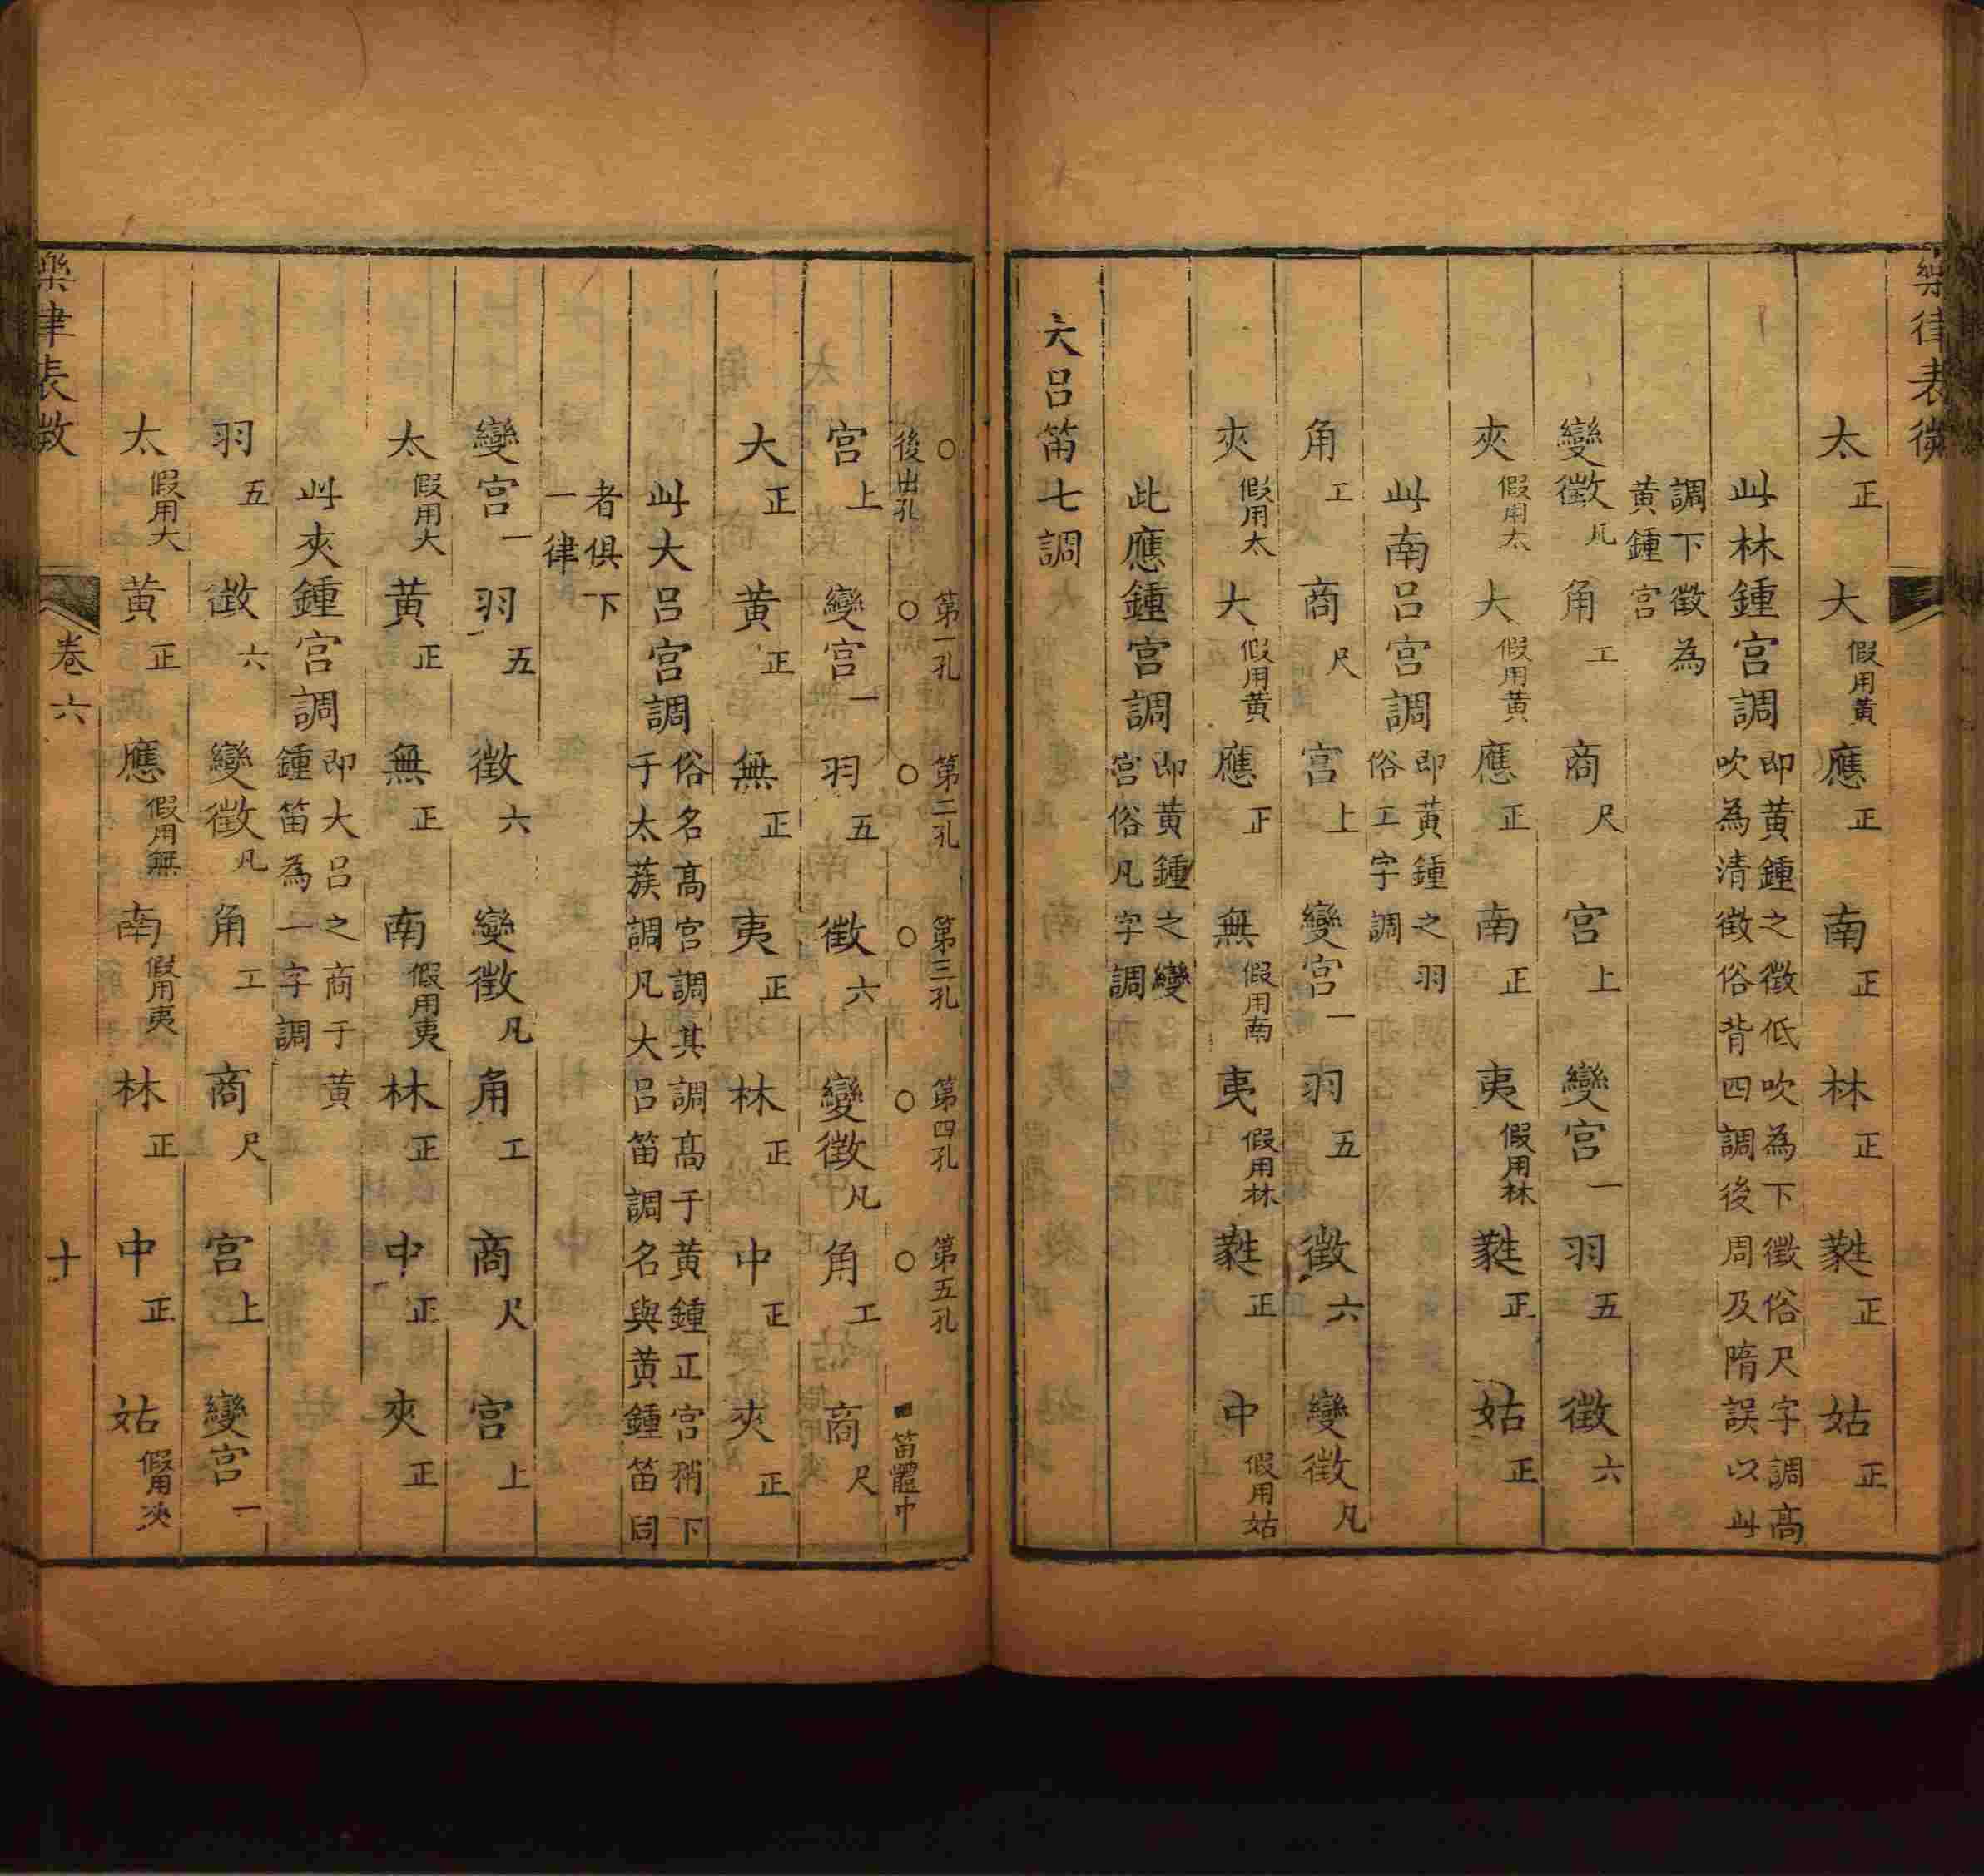 樂律表微
太正 大假用黃 應正 南正 林正 蕤正 姑正
此林鍾宮調即黃鍾之徵低吹為下徵俗尺字調高
吹為清徵俗背四調後周及隋誤以此
調下徵為
黃鍾宮
變徵凡 角工 商尺 宮上 變宮一 羽五 徵六
夾假用太 大假用黃 應正 南正 夷假用林 蕤正 姑正
此南呂宮調即黃鍾之羽
俗工字調
角工 商尺 宮上 變宮一 羽五 徵六 變徵凡
夾假用太 大假用黃 應正 無假用南 夷假用林 蕤正 中假用姑
此應鍾宮調即黃鍾之變
宮俗凡字調
大呂笛七調
○後出孔 ○第一孔 ○第二孔 ○第三孔 ○第四孔 ○第五孔 ■笛體中
宮上 變宮一 羽五 徵六 變徵凡 角工 商尺
大正 黃正 無正 夷正 林正 中正 夾正
此大呂宮調俗名高宮調其調高于黃鍾正宮稍下
于太蔟調凡大呂笛調名與黃鍾笛同
者俱下
一律
變宮一 羽五 徵六 變徵凡 角工 商尺 宮上
太假用大 黃正 無正 南假用夷 林正 中正 夾正
此夾鍾宮調即大呂之商于黃
鍾笛為一字調
羽五 徵六 變徵凡 角工 商尺 宮上 變宮一
太假用大 黃正 應假用無 南假用夷 林正 中正 姑假用夾
樂律表微 卷六 十